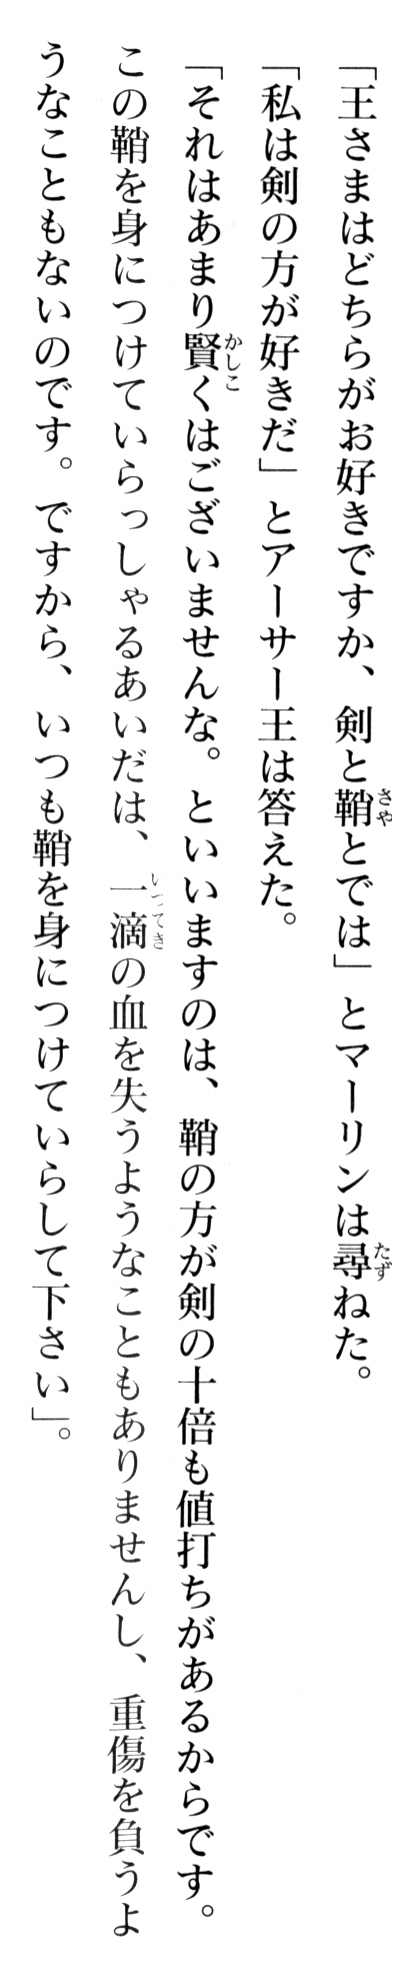 「王さまはどちらがお好きですか、剣と鞘とでは」とマーリンは尋ねた。
「私は剣の方が好きだ」とアーサー王は答えた。
「それはあまり賢くはございませんな。といいますのは、鞘の方が剣の十倍も値打ちがあるからです。
この鞘を身につけていらっしゃるあいだは、一滴の血を失うようなこともありませんし、重傷を負うよ
うなこともないのです。ですから、いつも鞘を身につけていらして下さい」。